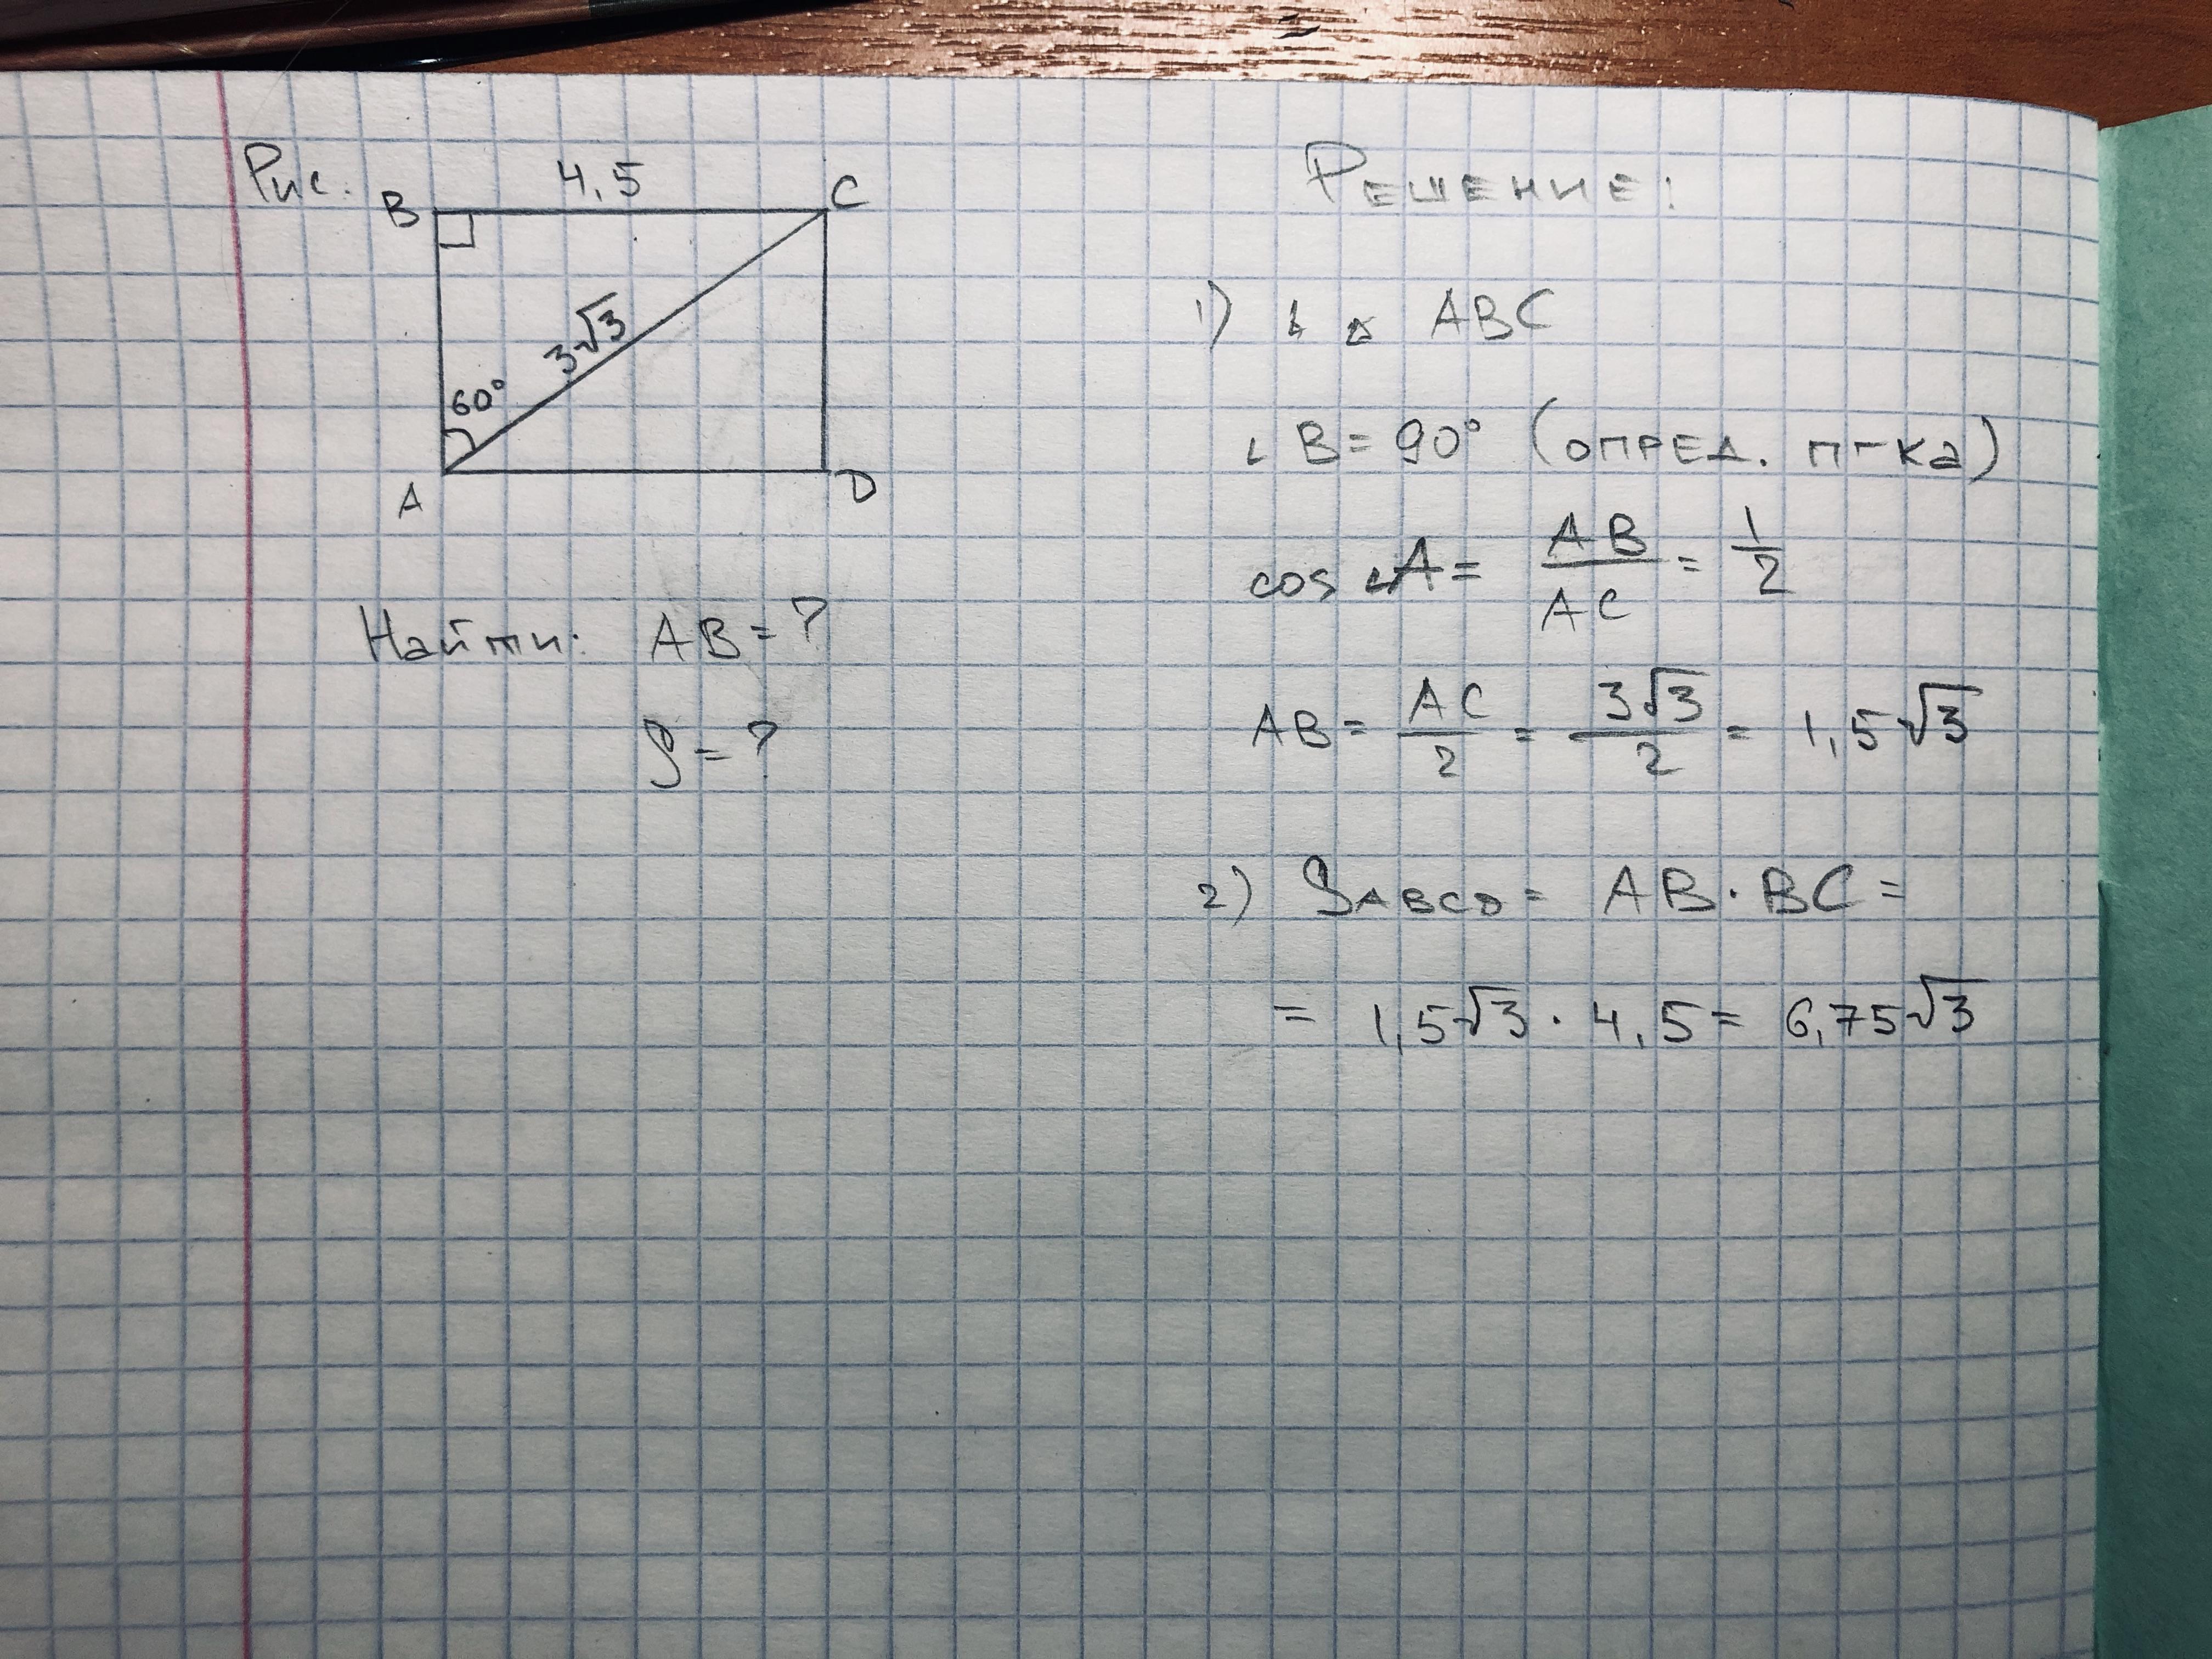 Рис.
B 4,5 C
3√3
60°
A D
Найти: AB = ?
S = ?
Решение:
1) ⊾ △ ABC
∠B = 90° (опред. пг-ка)
cos ∠A = AB/AC = 1/2
AB = AC/2 = 3√3/2 = 1,5√3
2) SABCD = AB · BC =
= 1,5√3 · 4,5 = 6,75√3